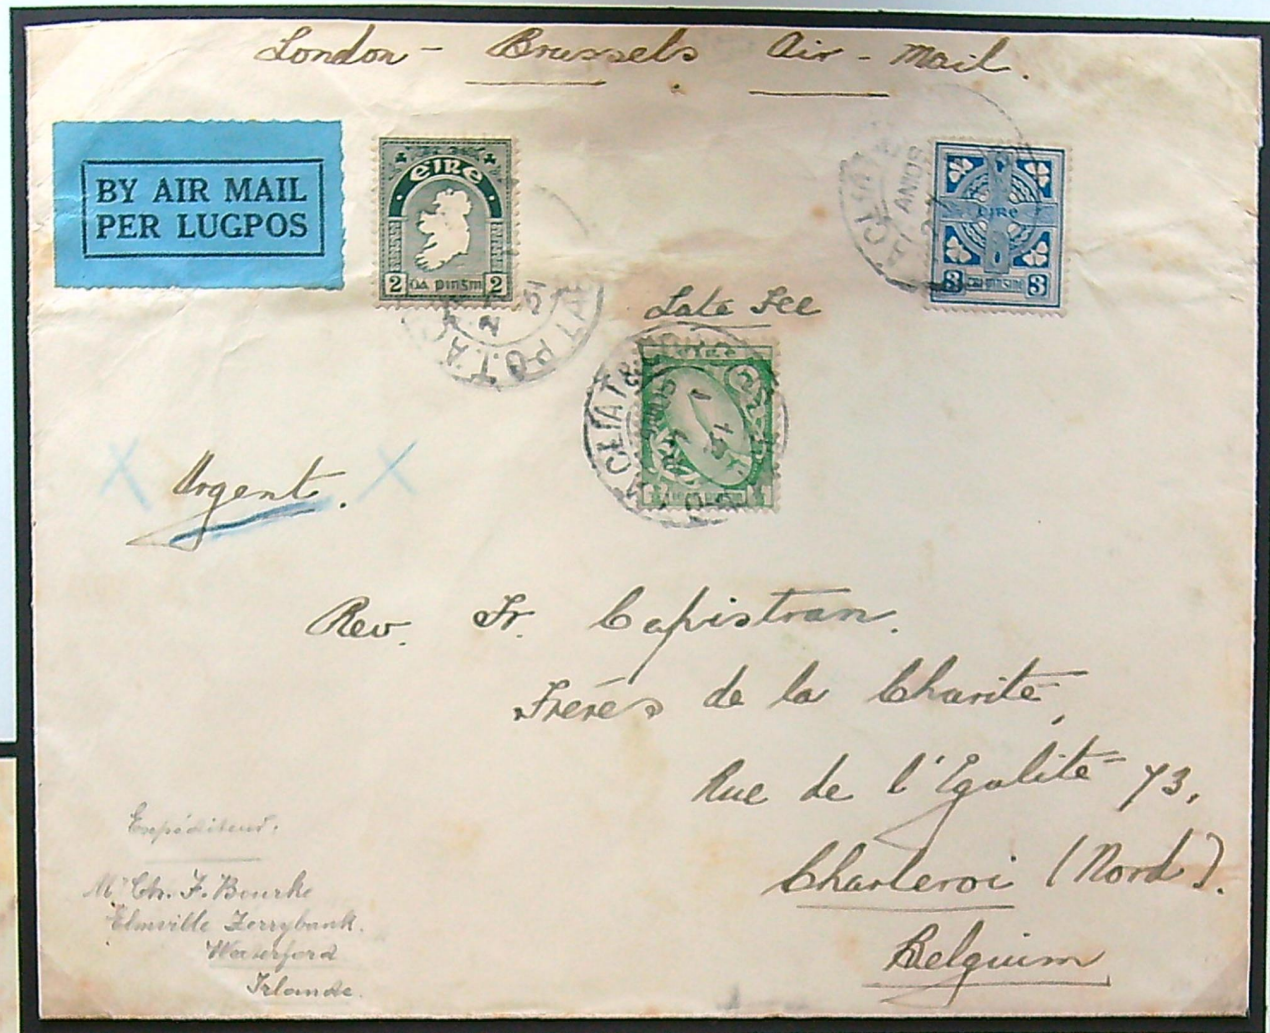 London - Brussels Air - Mail.
BY AIR MAIL
PER LUGPOS
éire
2 dá pinginn 2
éire
3 3
Late Fee
CLIAT
P.O.T.A
CLIAT
Urgent.
Rev. Fr. Capistran.
Fréres de la Charité,
Rue de l'Egalité 73,
Charleroi (Nord).
Belgium
Expéditeur.
Mr Ch. F. Bourke
Elmville Ferrybank.
Waterford
Irlande.